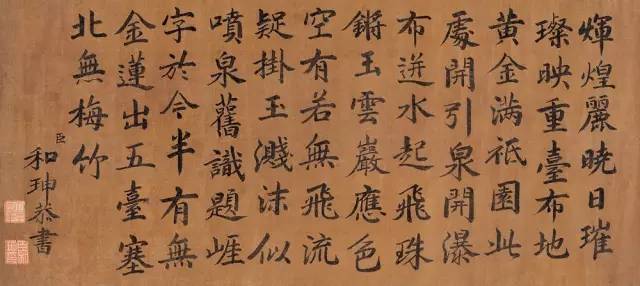 輝煌麗曉日璀
璨映重臺布地
黄金滿祇園此
處開引泉開瀑
布迸水起飛珠
鏘玉雲巖應色
空有若無飛流
疑掛玉濺沫似
噴泉舊識題崕
字於今半有無
金蓮出五臺塞
北無梅竹
臣和珅恭書